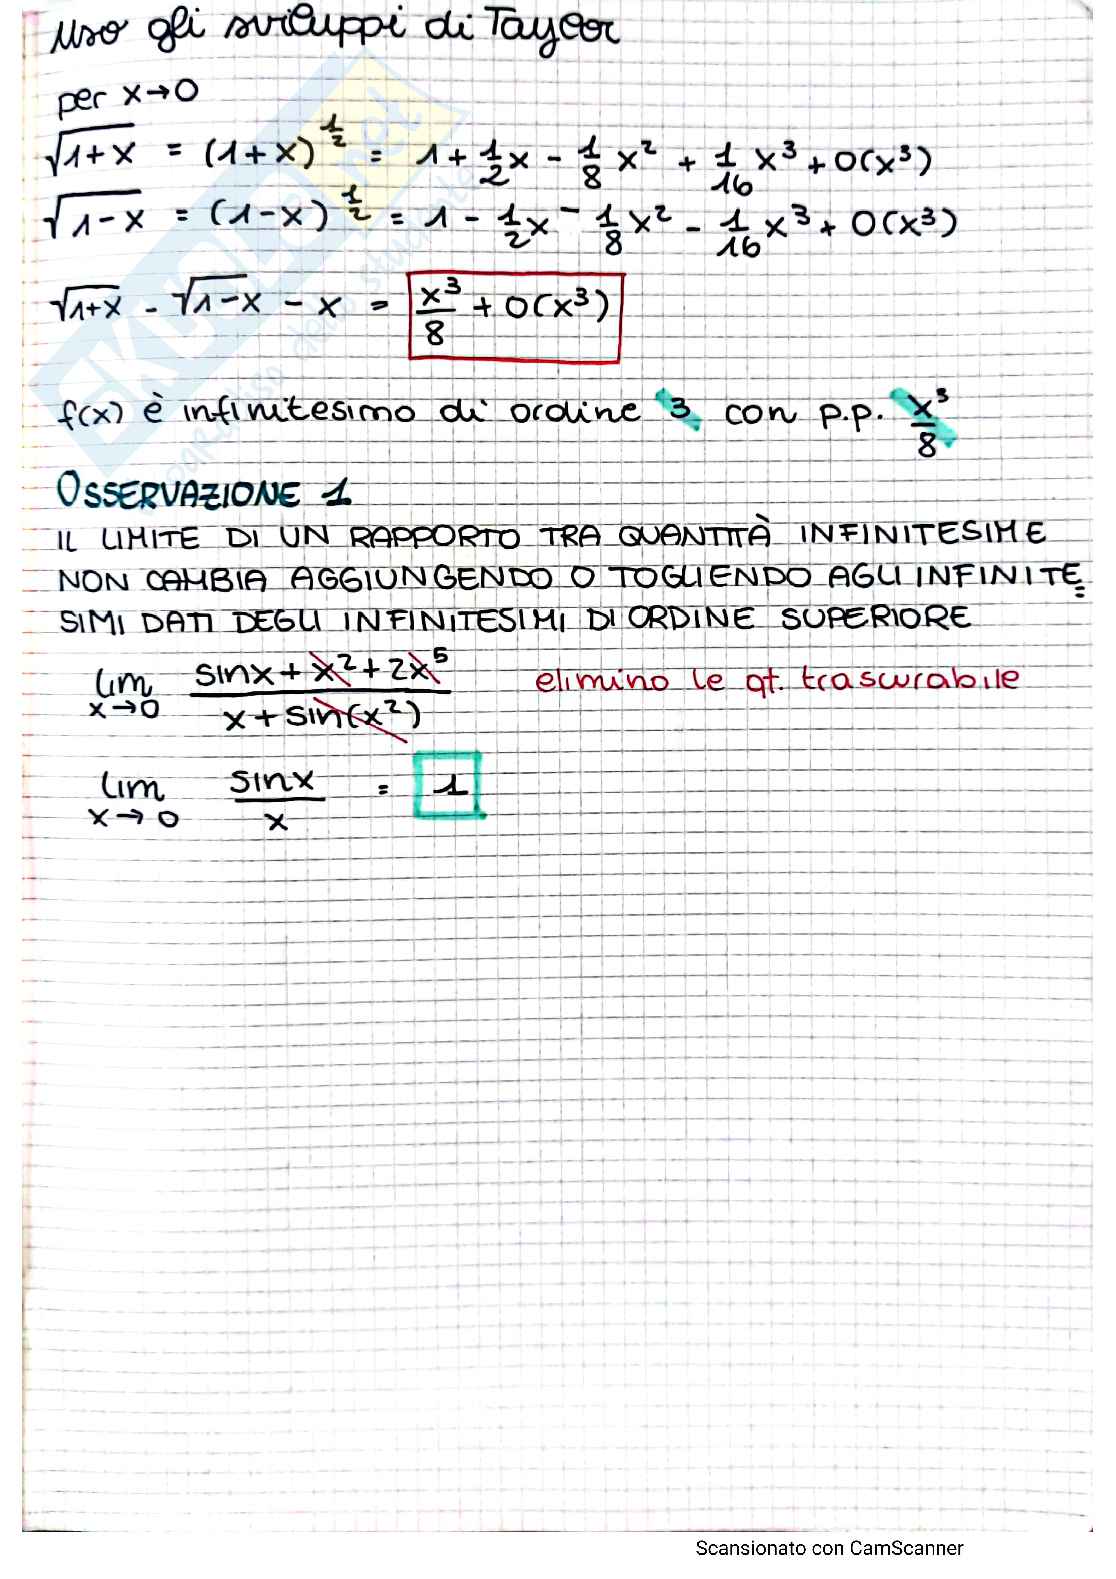 uso gli sviluppi di Taylor
per x→0
√1+x = (1+x)^1/2 = 1 + 1/2 x - 1/8 x² + 1/16 x³ + o(x³)
√1-x = (1-x)^1/2 = 1 - 1/2 x - 1/8 x² - 1/16 x³ + o(x³)
√1+x - √1-x - x = x³/8 + o(x³)
f(x) è infinitesimo di ordine 3 con p.p. x³/8
OSSERVAZIONE 1
IL LIMITE DI UN RAPPORTO TRA QUANTITÀ INFINITESIME
NON CAMBIA AGGIUNGENDO O TOGLIENDO AGLI INFINITE=
SIMI DATI DEGLI INFINITESIMI DI ORDINE SUPERIORE
lim x→0 (sinx + x² + 2x⁵)/(x + sin(x²)) elimino le qt. trascurabile
lim x→0 sinx/x = 1
Scansionato con CamScanner